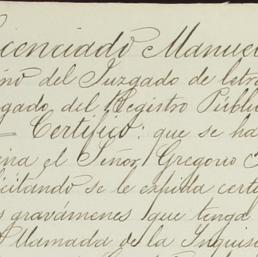 Licenciado Manue
ino del Juzgado de letra
gado, del Registro Públi
Certifico: que se ha
ina el Señor Gregorio
licitando se le expida certi
s gravámenes que tenga
Llamada de la Inquisi